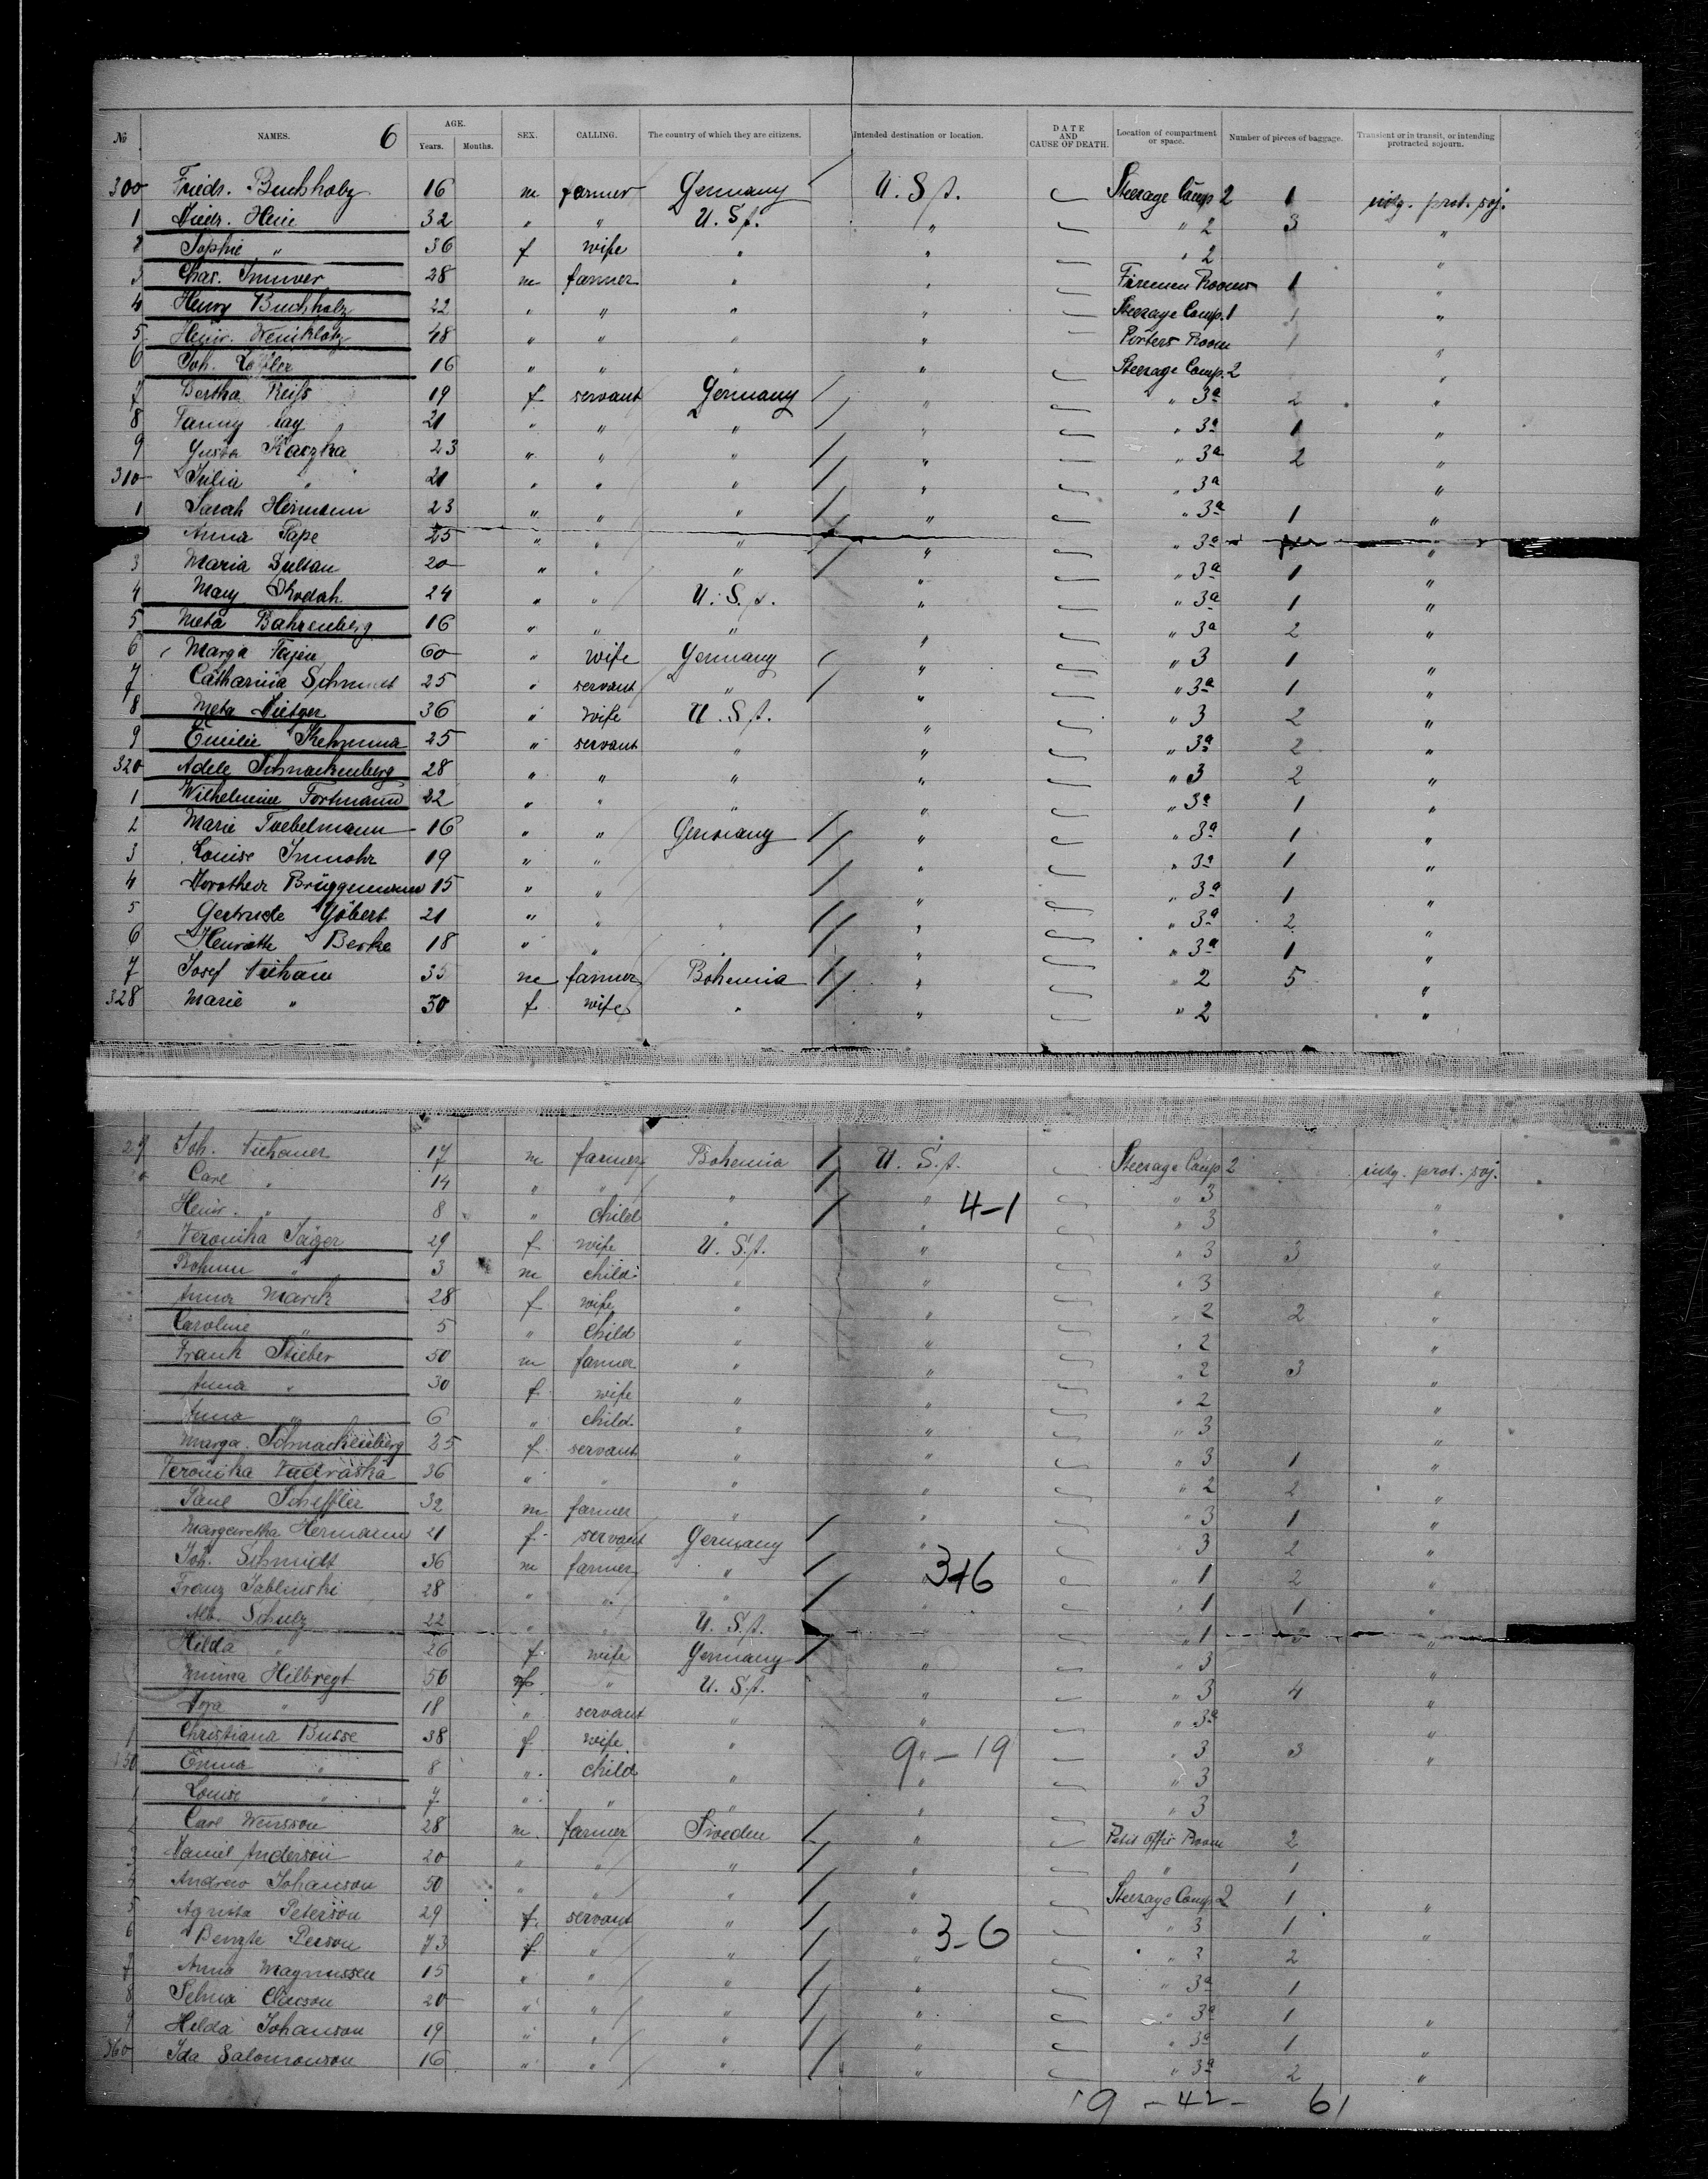 № NAMES. 6 AGE. Years. Months. SEX. CALLING. The country of which they are citizens. Intended destination or location. DATE AND CAUSE OF DEATH. Location of compartment or space. Number of pieces of baggage. Transient or in transit, or intending protracted sojourn.
300 Friedr. Buchholz 16 m farmer Germany / U. St. Steerage Comp 2 1 intg. prot. soj.
1 Diedr. Heni 32 " " U. St. " " 2 3 "
2 Sophie " 36 f wife " " " 2 "
3 Chas. Immer 28 m farmer " " Firemen Rooms 1 "
4 Henry Buchholz 22 " " " " Steerage Comp. 1 1 "
5 Heinr. 48 " " " " Porters Room 1 "
6 Joh. 16 " " " " Steerage Comp. 2 "
7 Bertha Reiss 19 f servant Germany / " " 3a 2 "
8 Fanny 21 " " " / " " 3a 1 "
9 Gusta Kaczka 23 " " " / " " 3a 2 "
310 Julia " 21 " " " / " " 3a "
1 Sarah Hermann 23 " " " / " " 3a 1 "
Anna Pape 25 " " " " " 3a "
3 Maria Dultau 20 " " " / " " 3a 1 "
4 Mary Skodah 24 " " U. St. " " 3a 1 "
5 Meta Bahrenberg 16 " " " " " 3a 2 "
6 Marga Tajen 60 " wife Germany / " " 3 1 "
7 Catharina Schmidt 25 " servant " / " " 3a 1 "
8 Meta Dietger 36 " wife U. St. " " 3 2 "
9 Emilie 25 " servant " " " 3a 2 "
320 Adele Schnackenberg 28 " " " " " 3 2 "
1 Wilhelmine Fortmann 22 " " " " " 3a 1 "
2 Marie Toebelmann 16 " " Germany / " " 3a 1 "
3 Louise Immohr 19 " " / " " 3a 1 "
4 Dorothea Brüggemann 15 " " / " " 3a 1 "
5 Gertrude Göbert 21 " " " / " " 3a 2 "
6 Henriette Berke 18 " " " / " " 3a 1 "
7 Josef 35 m farmer Bohemia / " " 2 5 "
328 Marie " 30 f wife " / " " 2 "
29 Joh. 17 m farmer Bohemia / U. St. Steerage Comp 2 intg. prot. soj.
Carl " 14 " " " / " " 3 "
Heinr. " 8 " child " / " 4-1 " 3 "
Veronika Jäger 29 f wife U. St. " " 3 3 "
" 3 m child " " " 3 "
Anna Marek 28 f wife " " " 2 2 "
Caroline " 5 " child " " " 2 "
Frank Stieber 50 m farmer " " " 2 3 "
Anna " 30 f wife " " " 2 "
Anna " 6 " child " " " 3 "
Marga. Schnackenberg 25 f servant " " " 3 1 "
Veronika 36 " " " " " 2 2 "
Paul Scheffler 32 m farmer " " " 3 1 "
Margaretha Hermann 21 f servant Germany / " " 3 2 "
Joh. Schmidt 36 m farmer " / 3-16 " 1 2 "
Franz Jablinski 28 " " " / " " 1 1 "
Alb. Schulz 22 " " U. St. " " 1 "
Hilda " 26 f wife Germany / " " 3 "
Minna Hilbregt 56 f " U. St. " " 3 4 "
Dora " 18 " servant " " " 3a "
Christiana Busse 38 f wife " 9 - 19 " 3 3 "
350 Emma " 8 " child " " " 3
1 Louise " 7 " " " " " 3
Carl Wensson 28 m farmer Sweden / " Petit Offir Room 2
3 Daniel Anderson 20 " " " / " " 1
Andrew Johanson 50 " " " / " Steerage Comp. 2 1 "
5 Agnista Peterson 29 f servant " / " " 3 1 "
6 Bengte Person 73 f " " / 3-6 " 3 2
7 Anna Magnussen 15 " " " / " " 3a 1
8 Selma Claeson 20 " " " / " " 3a 1 "
9 Hilda Johanson 19 " " " / " " 3a 1 "
360 Ida Salomonson 16 " " " / " " 3a 2 "
19 - 42 - 61